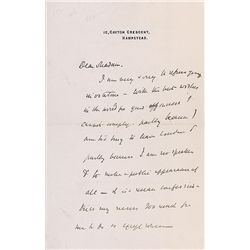 10, CROFTON CRESCENT,
HAMPSTEAD.
Dear Madam.
I am very sorry to refuse your
invitation – with the best wishes
in the world for your
cannot comply – partly because I
am too busy to leave London &
partly because I am no speaker
& to make a public appearance of
all – it is a mean confession –
tries my nerves too much for
me to do so